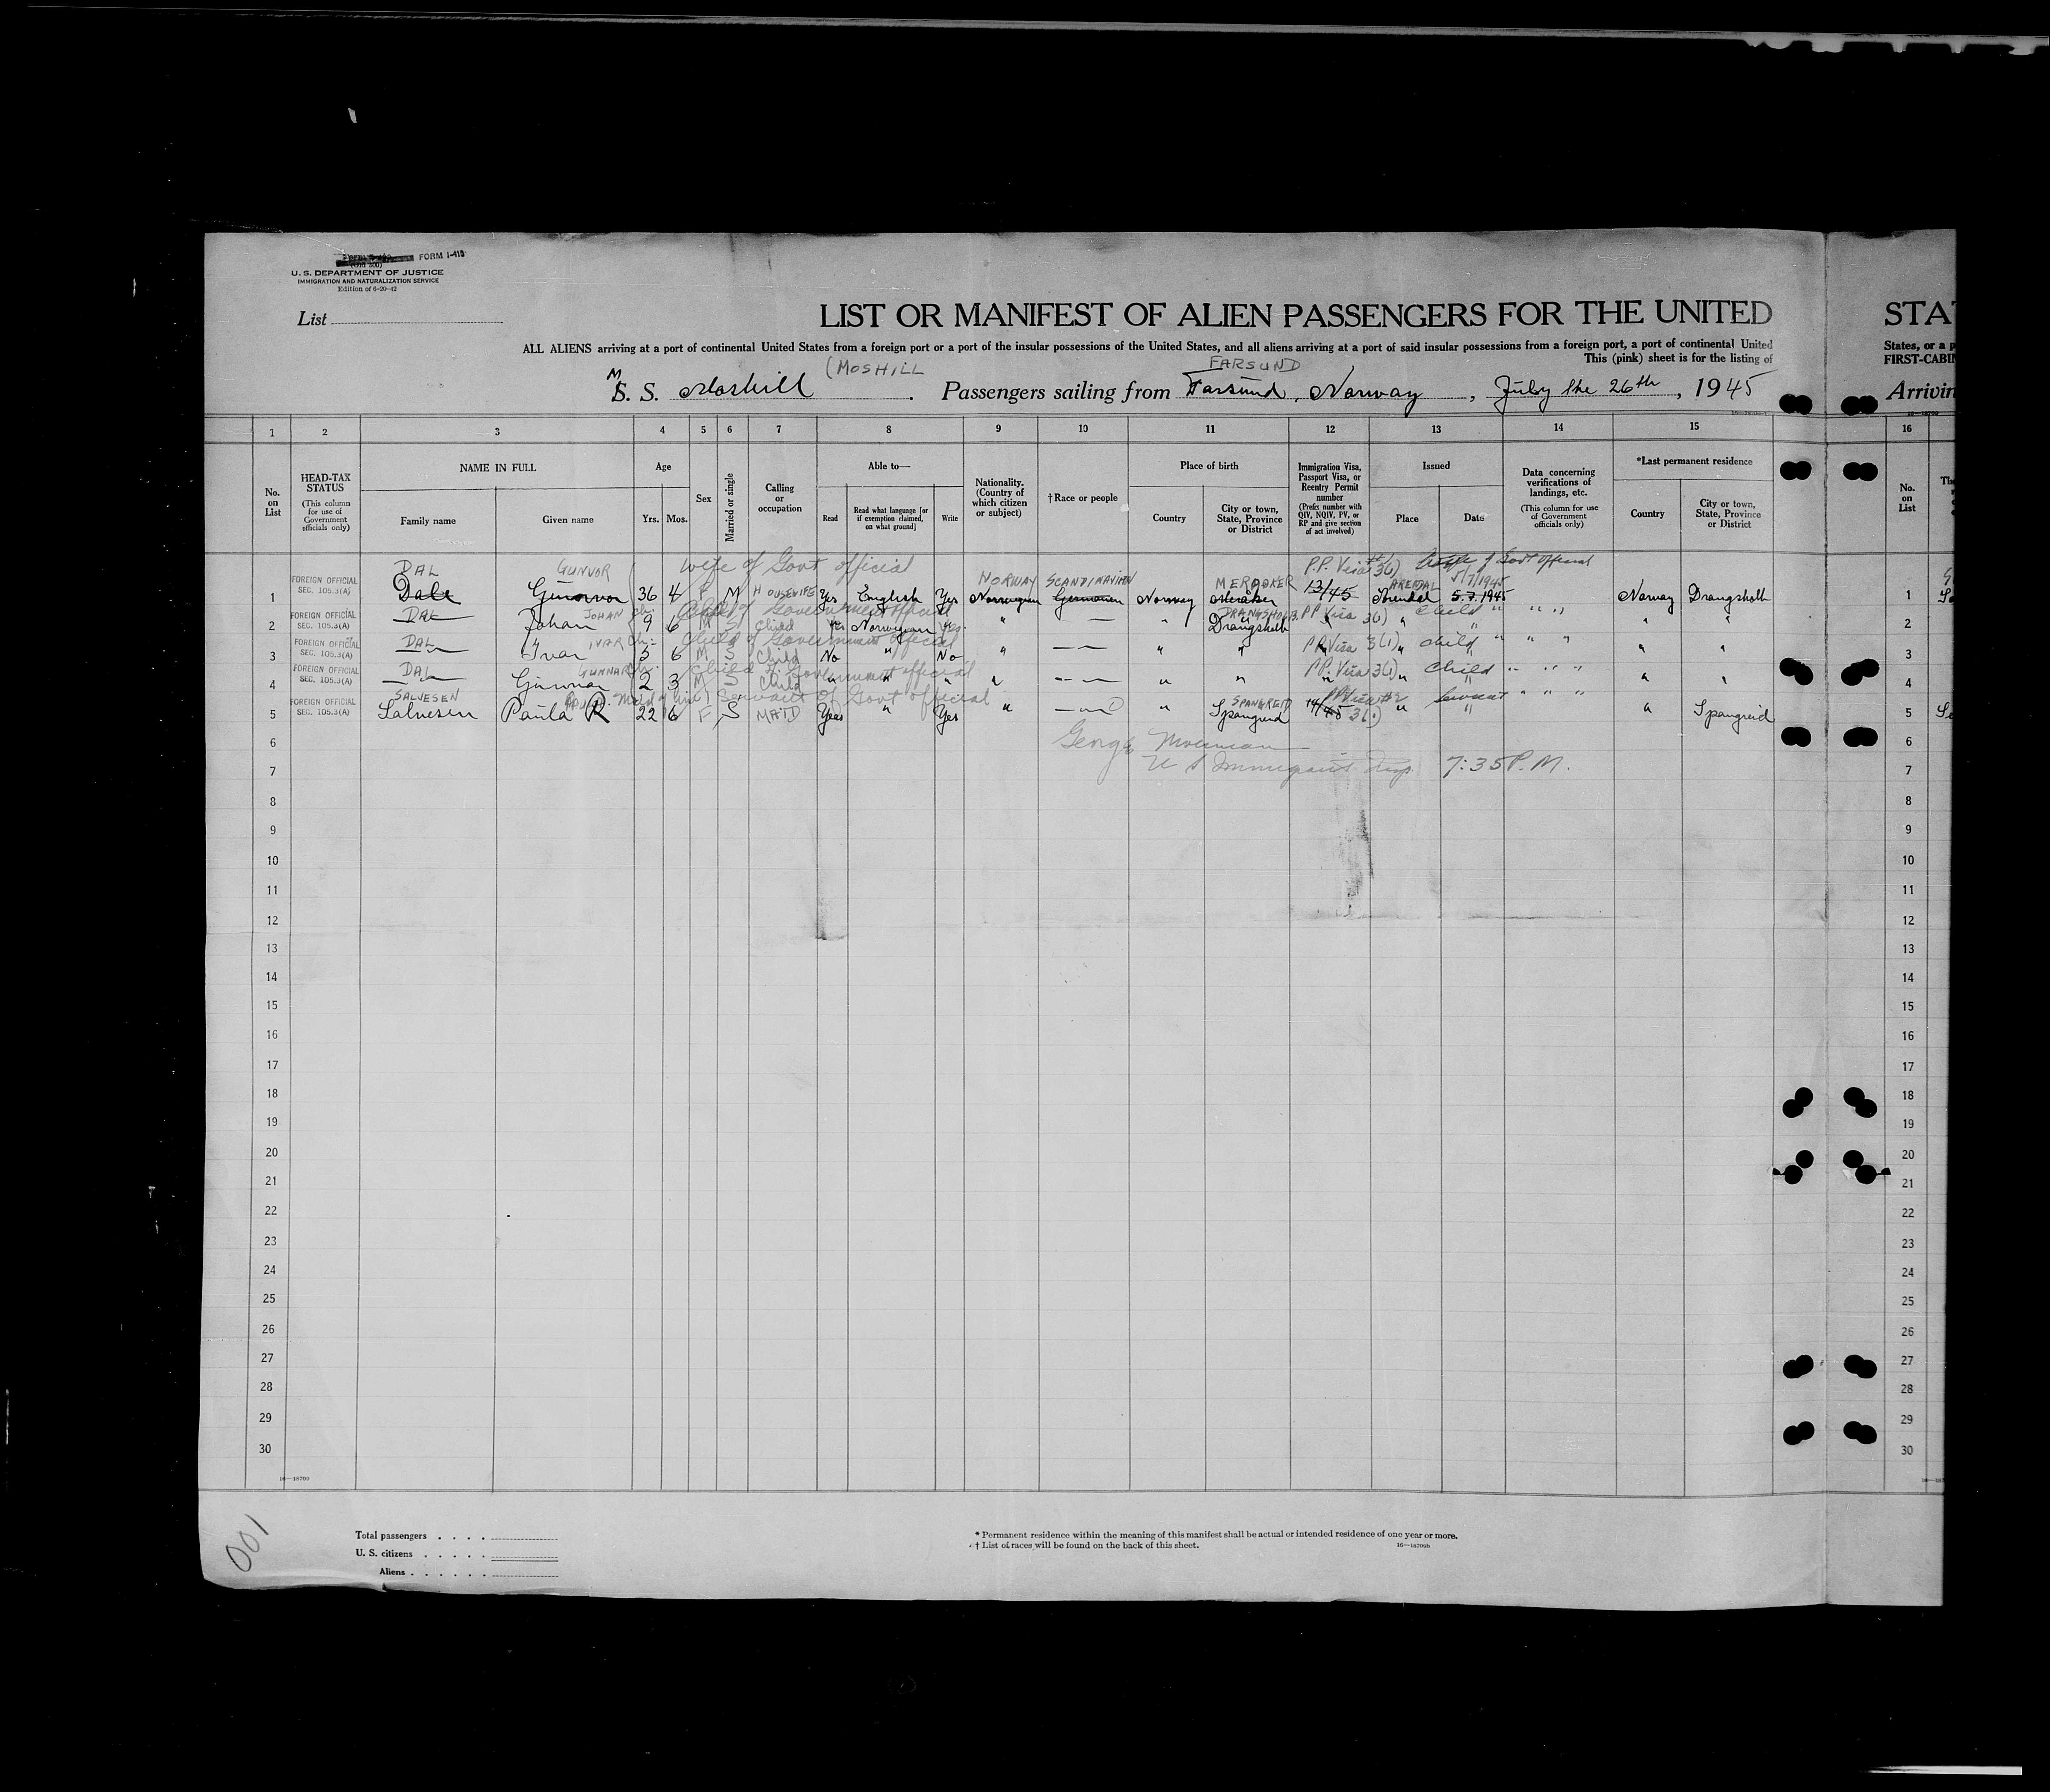 FORM I-415
(Old 500)
U. S. DEPARTMENT OF JUSTICE
IMMIGRATION AND NATURALIZATION SERVICE
Edition of 6-20-42
List
LIST OR MANIFEST OF ALIEN PASSENGERS FOR THE UNITED
STA
ALL ALIENS arriving at a port of continental United States from a foreign port or a port of the insular possessions of the United States, and all aliens arriving at a port of said insular possessions from a foreign port, a port of continental United
States, or a p
This (pink) sheet is for the listing of
FIRST-CABIN
(MOSHILL
FARSUND
M S. S. Moshill . Passengers sailing from Farsund, Norway , July the 26th , 1945
Arrivin
1 2 3 4 5 6 7 8 9 10 11 12 13 14 15 16
No. on List
HEAD-TAX STATUS
(This column for use of Government officials only)
NAME IN FULL
Family name
Given name
Age
Yrs. Mos.
Sex
Married or single
Calling or occupation
Able to—
Read
Read what language [or if exemption claimed, on what ground]
Write
Nationality. (Country of which citizen or subject)
†Race or people
Place of birth
Country
City or town, State, Province or District
Immigration Visa, Passport Visa, or Reentry Permit number
(Prefix number with QIV, NQIV, PV, or RP and give section of act involved)
Issued
Place
Date
Data concerning verifications of landings, etc.
(This column for use of Government officials only)
*Last permanent residence
Country
City or town, State, Province or District
No. on List
DAL GUNVOR wife of Govt official P.P. Visa 3(1) wife of Govt official
NORWAY SCANDINAVIAN MERAAKER ARENDAL 5/7/1945
1 FOREIGN OFFICIAL SEC. 105.3(A) Dale Gunnvor 36 4 F M HOUSEWIFE Yes English Yes Norwegian Germanen Norway Meraker 13/45 Arendal 5.7.1945 Norway Drangsholt 1
DAL JOHAN Child of Government official DRANGSHOLT PP Visa 3(1) Child " " "
2 FOREIGN OFFICIAL SEC. 105.3(A) — Johan 9 6 M S Child Yes Norwegian Yes " — " Drangsholt " " " " 2
DAL IVAR Child of Government official PP Visa 3(1) Child " " "
3 FOREIGN OFFICIAL SEC. 105.3(A) — Ivar 5 6 M S Child No " No " — " " " " " " 3
DAL GUNNAR Child of Government official PP. Visa 3(1) Child " " "
4 FOREIGN OFFICIAL SEC. 105.3(A) — Gunnar 2 3 M S Child " " " " — " " " " " " 4
SALVESEN Servant of Govt official SPANGREID PP Visa 3(1) Servant " " "
5 FOREIGN OFFICIAL SEC. 105.3(A) Salvesen Paula R 22 6 F S MAID Yes " Yes " — " Spangreid 14/45 " " " Spangreid 5
6 George 6
7 U S Immigrant Insp. 7:35 P.M. 7
8 8
9 9
10 10
11 11
12 12
13 13
14 14
15 15
16 16
17 17
18 18
19 19
20 20
21 21
22 22
23 23
24 24
25 25
26 26
27 27
28 28
29 29
30 30
16—18709
001
Total passengers . . . .
U. S. citizens . . . . .
Aliens . . . . . .
* Permanent residence within the meaning of this manifest shall be actual or intended residence of one year or more.
† List of races will be found on the back of this sheet.
16—18709b